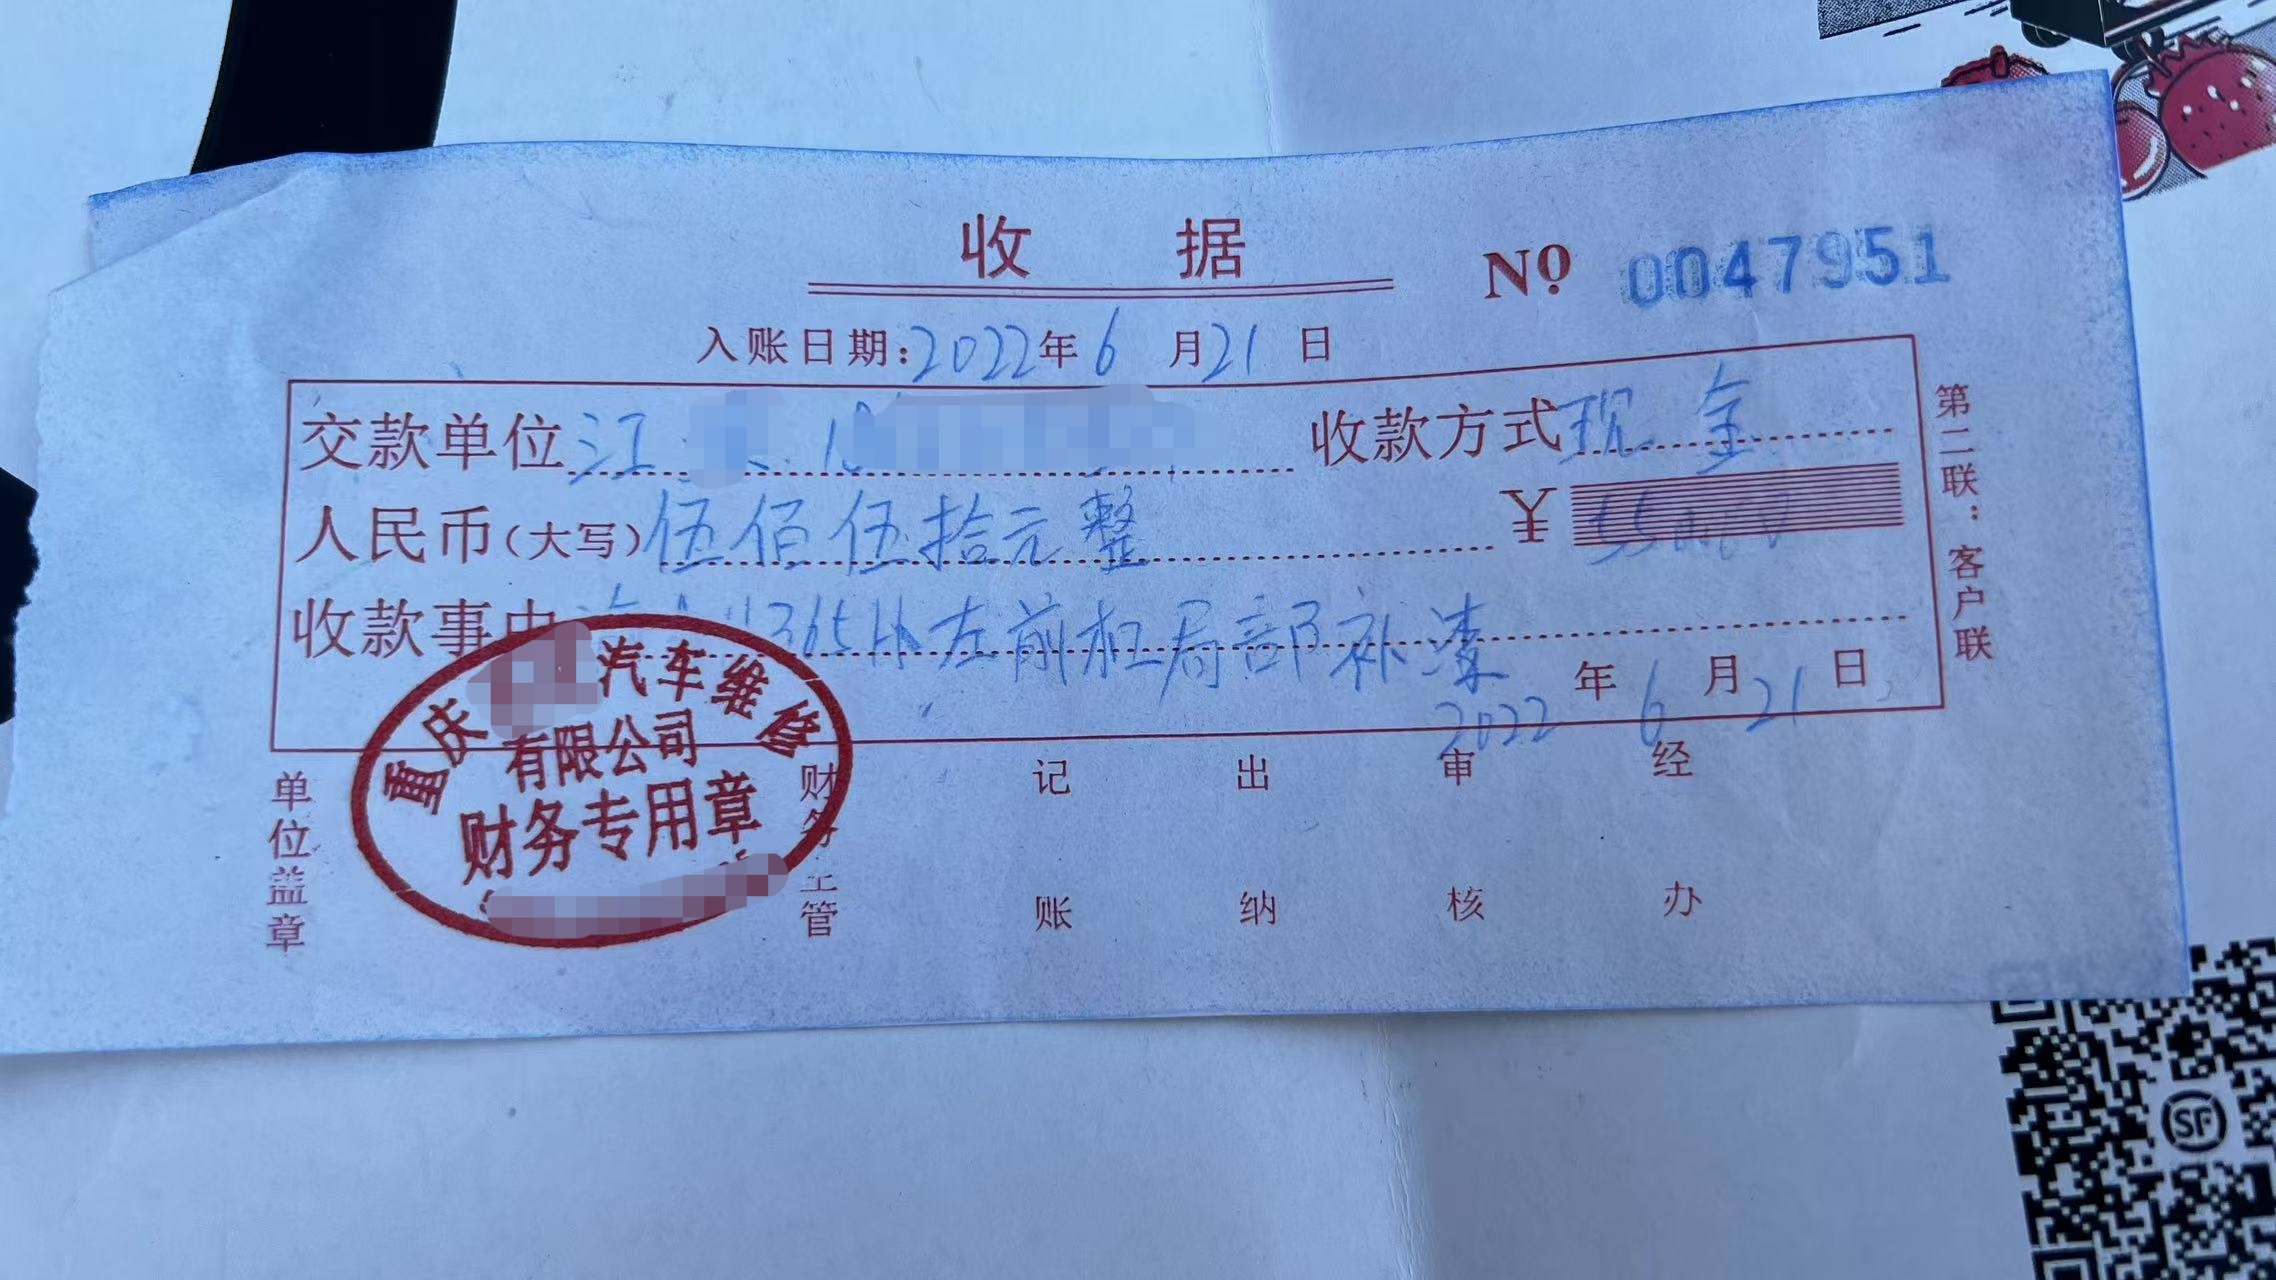 收 据 Nº 0047951
入账日期:2022年6月21日
交款单位 江 收款方式 现金
人民币(大写)伍佰伍拾元整 ¥
收款事由 365 左前杠局部补漆
2022年6月21日
第二联:客户联
单位盖章 财务主管 记账 出纳 审核 经办
重庆 汽车维修
有限公司
财务专用章
SF